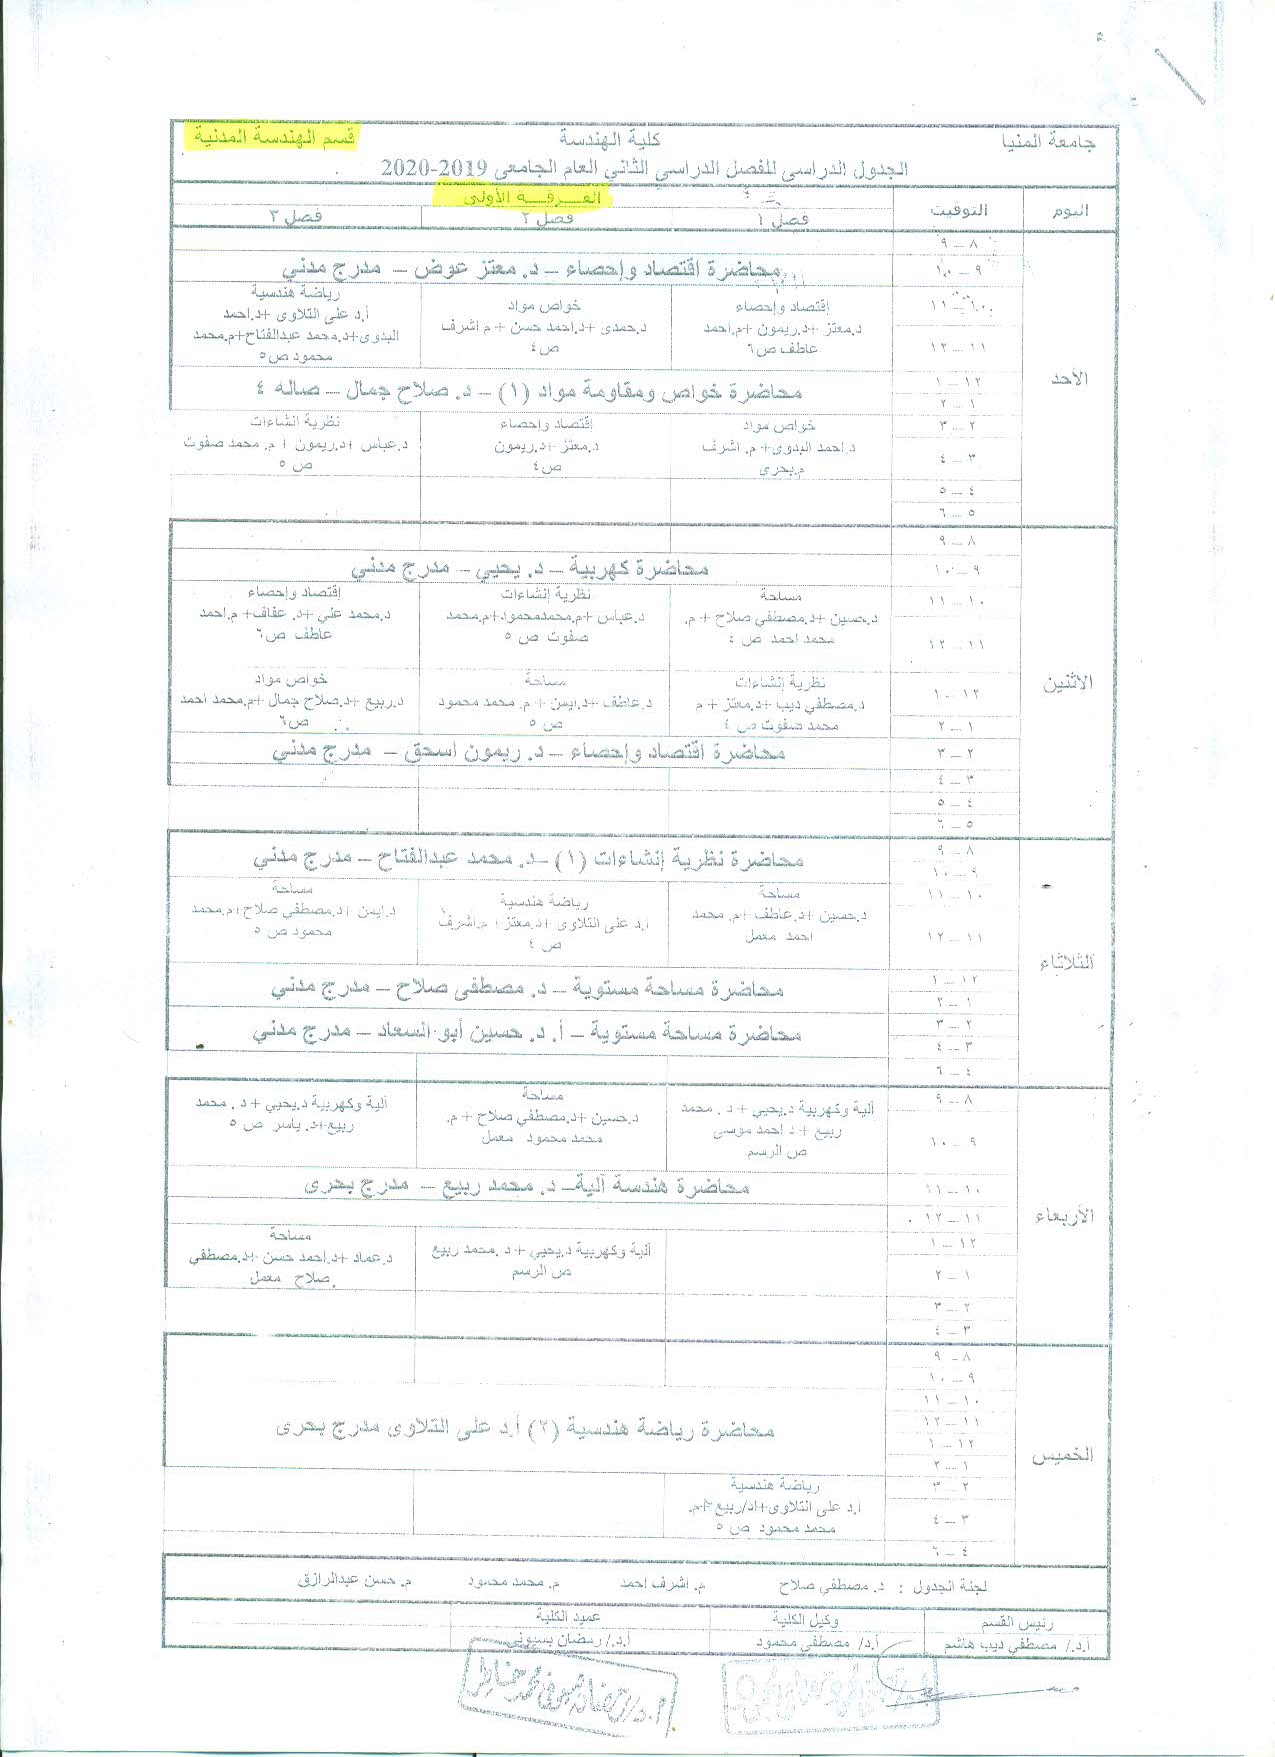 جامعة المنيا
كلية الهندسة
قسم الهندسة المدنية
الجدول الدراسى للفصل الدراسى الثاني العام الجامعى 2019-2020
اليوم
التوقيت
الفـــرقـــة الأولى
فصل ١
فصل ٢
فصل ٣
الأحد
٨ – ٩
٩ – ١٠
محاضرة اقتصاد وإحصاء – د. معتز عوض – مدرج مدني
١٠ – ١١
١١ – ١٢
إقتصاد وإحصاء
د.معتز +د.ريمون +م.احمد
عاطف ص٦
خواص مواد
د.حمدى +د.احمد حسن + م اشرف
ص٤
رياضة هندسية
أ.د على التلاوى +د.احمد
البدوى+د.محمد عبدالفتاح+م.محمد
محمود ص٥
١٢ – ١
١ – ٢
محاضرة خواص ومقاومة مواد (١) – د. صلاح جمال – صاله ٤
٢ – ٣
٣ – ٤
خواص مواد
د.احمد البدوى+ م. اشرف
م.بحرى
اقتصاد وإحصاء
د.معتز +د.ريمون
ص٤
نظرية انشاءات
د.عباس +د.ريمون + م. محمد صفوت
ص ٥
٤ – ٥
٥ – ٦
الاثنين
٨ – ٩
٩ – ١٠
محاضرة كهربية – د. يحيي – مدرج مدني
١٠ – ١١
١١ – ١٢
مساحة
د.حسين +د.مصطفي صلاح + م.
محمد احمد ص ٤
نظرية إنشاءات
د.عباس +م.محمدمحمود+م.محمد
صفوت ص ٥
إقتصاد وإحصاء
د.محمد علي +د. عفاف+ م.احمد
عاطف ص٦
١٢ – ١
١ – ٢
نظرية إنشاءات
د.مصطفي ديب +د.معتز + م
محمد صفوت ص ٤
مساحة
د.عاطف +د.ايمن + م. محمد محمود
ص ٥
خواص مواد
د.ربيع +د.صلاح جمال +م.محمد احمد
ص٦
٢ – ٣
محاضرة اقتصاد وإحصاء – د. ريمون اسحق – مدرج مدني
٣ – ٤
٤ – ٥
٥ – ٦
الثلاثاء
٨ – ٩
٩ – ١٠
محاضرة نظرية إنشاءات (١) –د. محمد عبدالفتاح – مدرج مدني
١٠ – ١١
١١ – ١٢
مساحة
د.حسين +د.عاطف +م. محمد
احمد معمل
رياضة هندسية
أ.د على التلاوى +د.معتز + م.اشرف
ص ٤
مساحة
د.ايمن +د.مصطفي صلاح+م.محمد
محمود ص ٥
١٢ – ١
١ – ٢
محاضرة مساحة مستوية – د. مصطفى صلاح – مدرج مدني
٢ – ٣
٣ – ٤
محاضرة مساحة مستوية – أ. د. حسين أبو السعاد – مدرج مدني
٤ – ٦
الأربعاء
٨ – ٩
٩ – ١٠
آلية وكهربية د.يحيي + د . محمد
ربيع + د احمد موسى
ص الرسم
مساحة
د.حسين +د.مصطفي صلاح + م.
محمد محمود معمل
آلية وكهربية د.يحيي + د . محمد
ربيع+د. ياسر ص ٥
١٠ – ١١
١١ – ١٢
محاضرة هندسة آلية– د. محمد ربيع – مدرج بحرى
١٢ – ١
١ – ٢
آلية وكهربية د.يحيي + د . محمد ربيع
ص الرسم
مساحة
د.عماد +د.احمد حسن +د.مصطفي
صلاح معمل
٢ – ٣
٣ – ٤
الخميس
٨ – ٩
٩ – ١٠
١٠ – ١١
١١ – ١٢
١٢ – ١
١ – ٢
محاضرة رياضة هندسية (٢) أ.د على التلاوى مدرج بحرى
٢ – ٣
٣ – ٤
رياضة هندسية
أ.د على التلاوى+د/ربيع +م.
محمد محمود ص ٥
٤ – ٦
لجنة الجدول : د. مصطفي صلاح م. اشرف احمد م. محمد محمود م. حسن عبدالرازق
رئيس القسم
وكيل الكلية
عميد الكلية
أ.د./ مصطفي ديب هاشم
أ.د/ مصطفي محمود
أ.د./ رمضان بسيوني